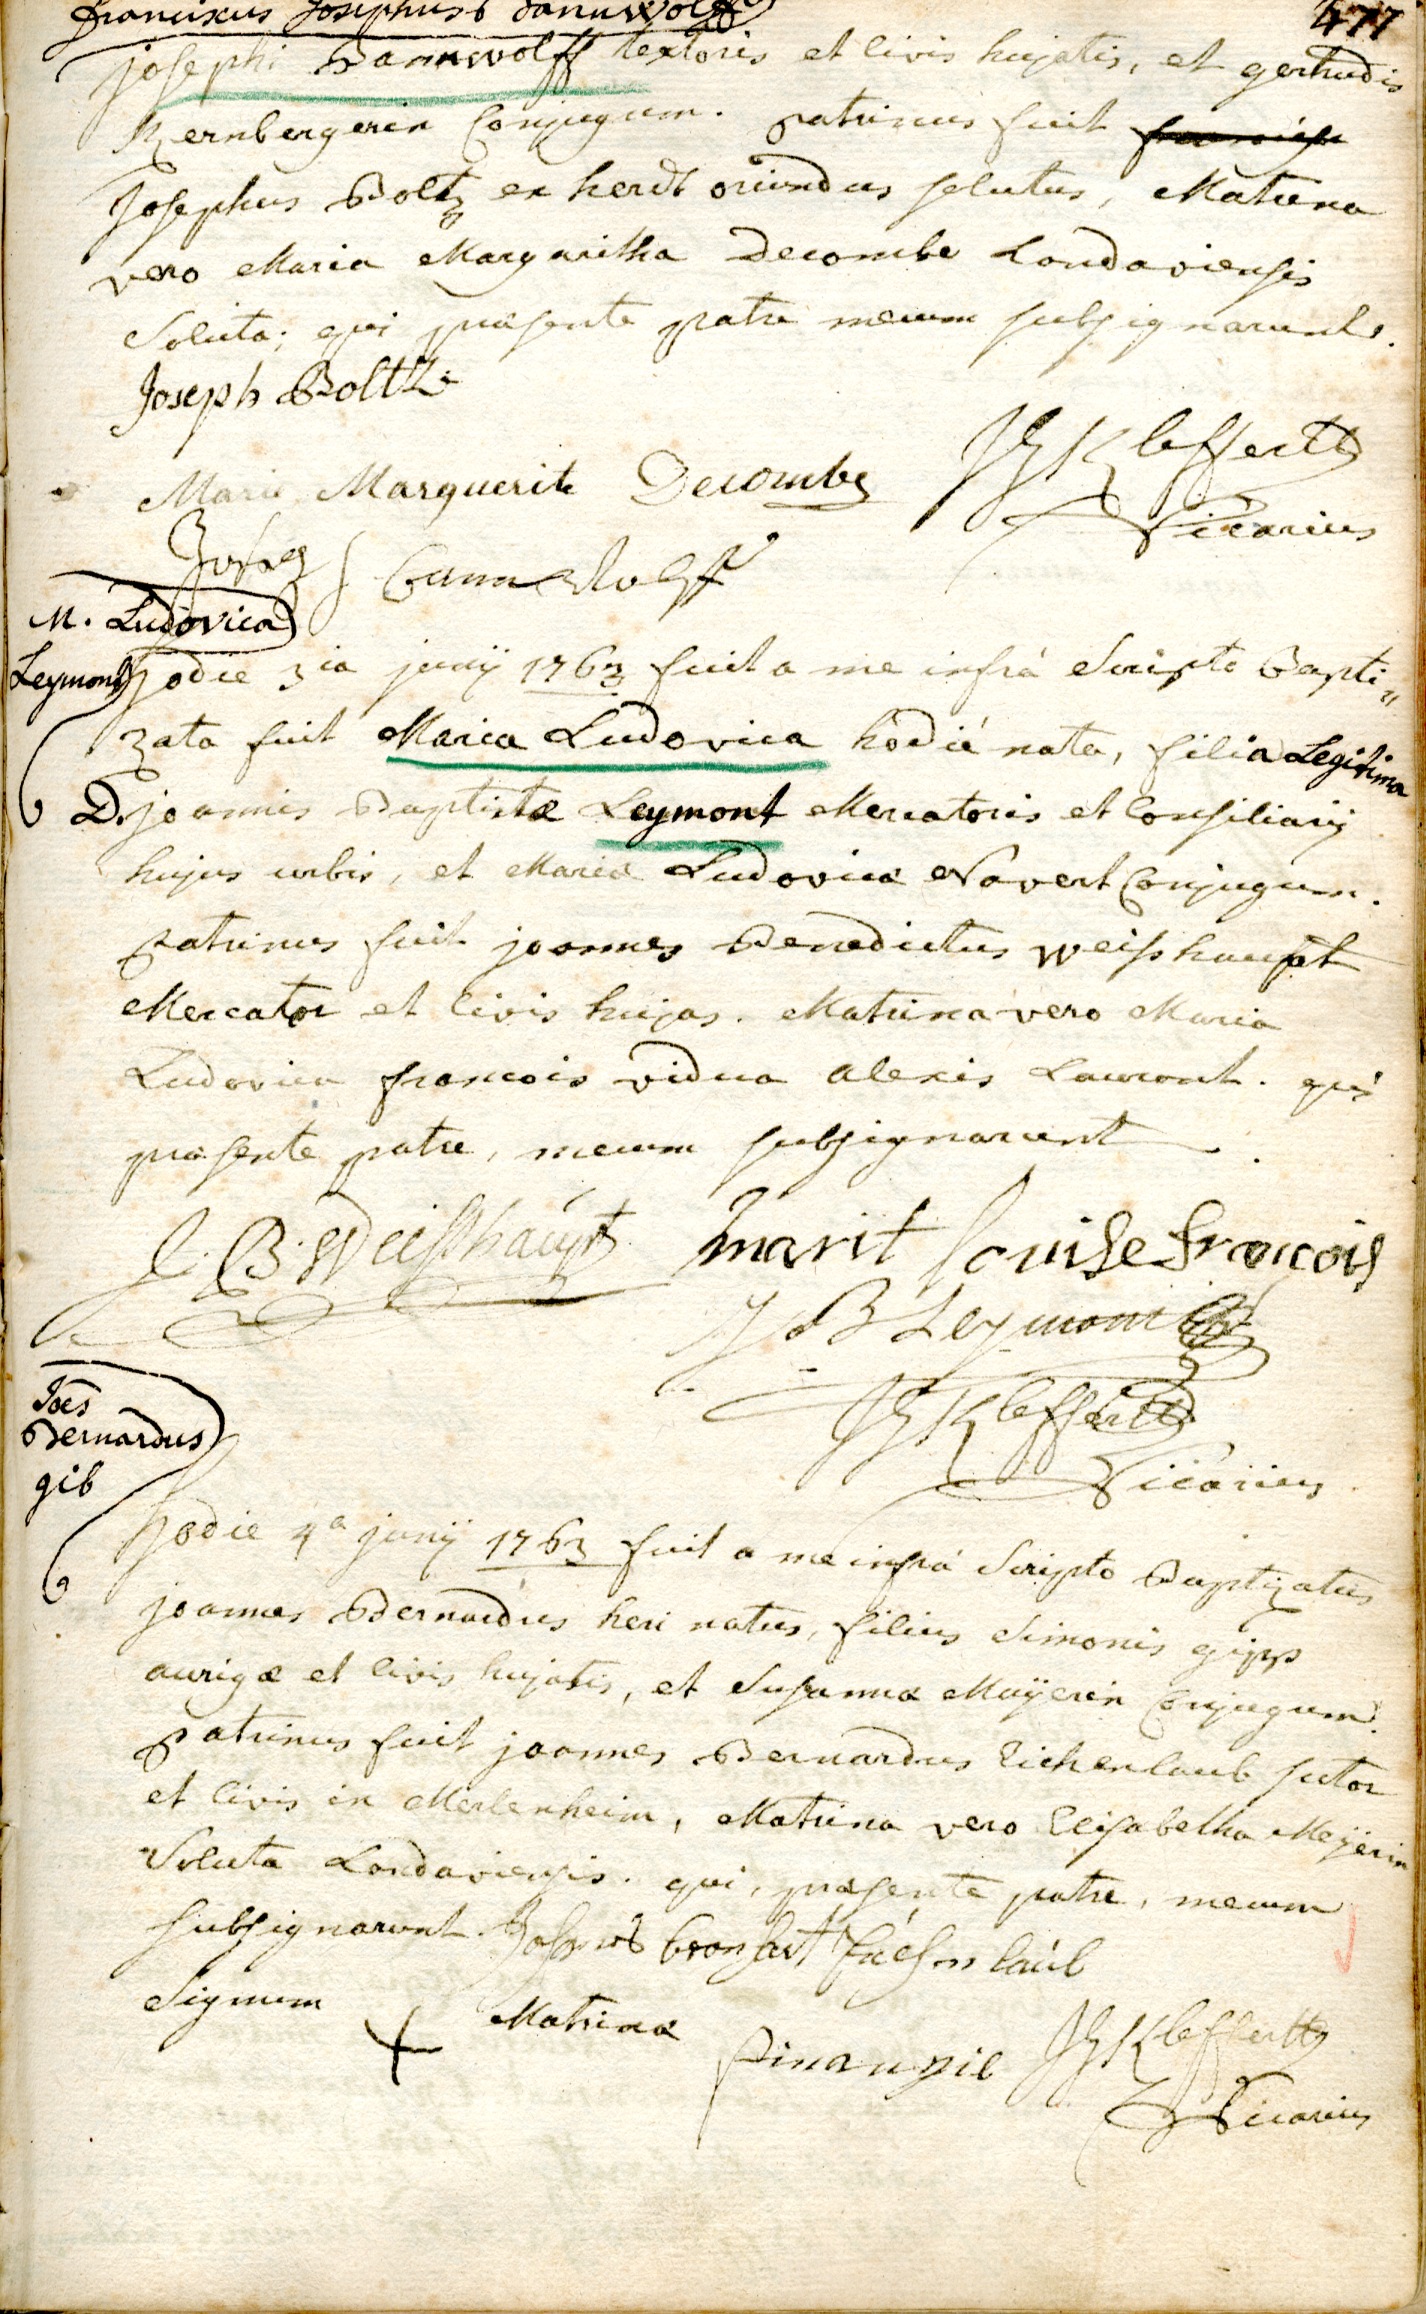 Franciscus Josephus Dannwolff
477
josephi Dannwolff textoris et Civis hujatis, et gertrudis
Kernbergerin Conjugum. patrinus fuit
Josephus Boltz ex herdt oriundus solutus, Matrina
vero Maria Margaritha Decombe Landaviensis
Soluta; qui præsente patre mecum subsignarunt.
Joseph Boltz
Marie Marguerite Decombe
JG Kleffertz
Vicarius
M. Ludovica
Leymont
hodie 3ia junij 1763 fuit a me infrà Scripto Bapti„
zata fuit Maria Ludovica hodiè nata, filia Legitima
D. joannis Baptistæ Leymont Mercatoris et Consiliarij
hujus urbis, et Mariæ Ludovicæ Navert Conjugum.
patrinus fuit joannes Benedictus Weisshaupt
Mercator et Civis hujas. Matrina vero Maria
Ludovica francois vidua Alexis Laurent. qui
præsente patre, mecum subsignarunt.
J. B. Weisshaupt
marit Louise François
J B Leymont
JG Kleffertz
Vicarius
Joes
Bernardus
gib
hodie 4a junij 1763 fuit a me infrà Scripto Baptizatus
joannes Bernardus heri natus, filius Simonis gipp
aurigæ et Civis hujatis, et Susannæ Mayerin Conjugum.
patrinus fuit joannes Bernardus Eichenlaub sutor
et Civis in Merlenheim, Matrina vero Elisabetha Meÿerin
Soluta Landaviensis. qui, præsente patre, mecum
subsignarunt.
Signum + Matrinæ
JG Kleffertz
Vicarius